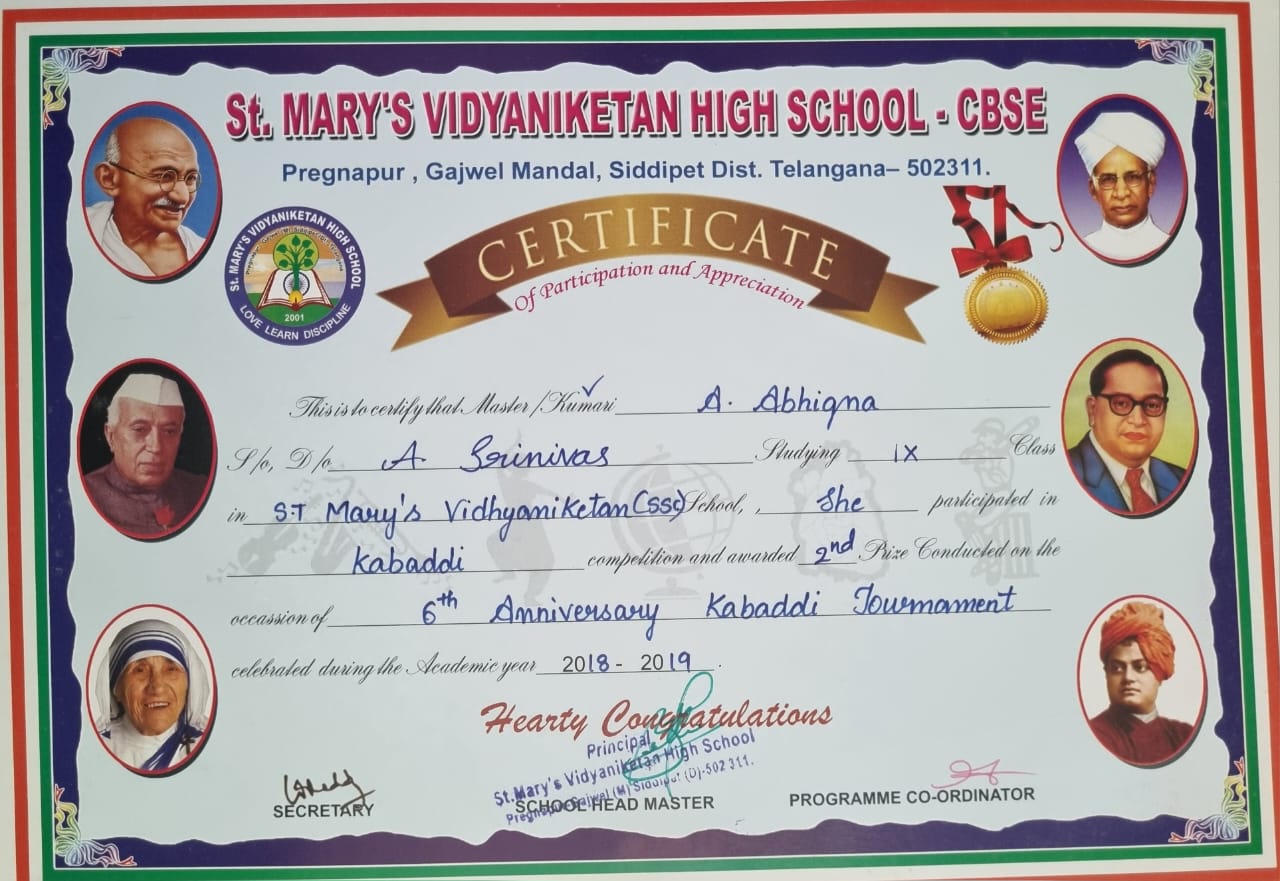 St. MARY'S VIDYANIKETAN HIGH SCHOOL - CBSE
Pregnapur , Gajwel Mandal, Siddipet Dist. Telangana– 502311.
St. MARY'S VIDYANIKETAN HIGH SCHOOL
2001
LOVE LEARN DISCIPLINE
CERTIFICATE
Of Participation and Appreciation
This is to certify that Master /Kumari ✓ A. Abhigna
S/o, D/o A Srinivas Studying IX Class
in S.T Mary's Vidhyaniketan (SSC) School, , She participated in
Kabaddi competition and awarded 2nd Prize Conducted on the
occassion of 6th Anniversary Kabaddi Tournament
celebrated during the Academic year 2018 - 2019 .
Hearty Congratulations
Principal
St.Mary's Vidyaniketan High School
Pregnapur Gajwel (M) Siddipet (D)-502 311.
SECRETARY SCHOOL HEAD MASTER PROGRAMME CO-ORDINATOR